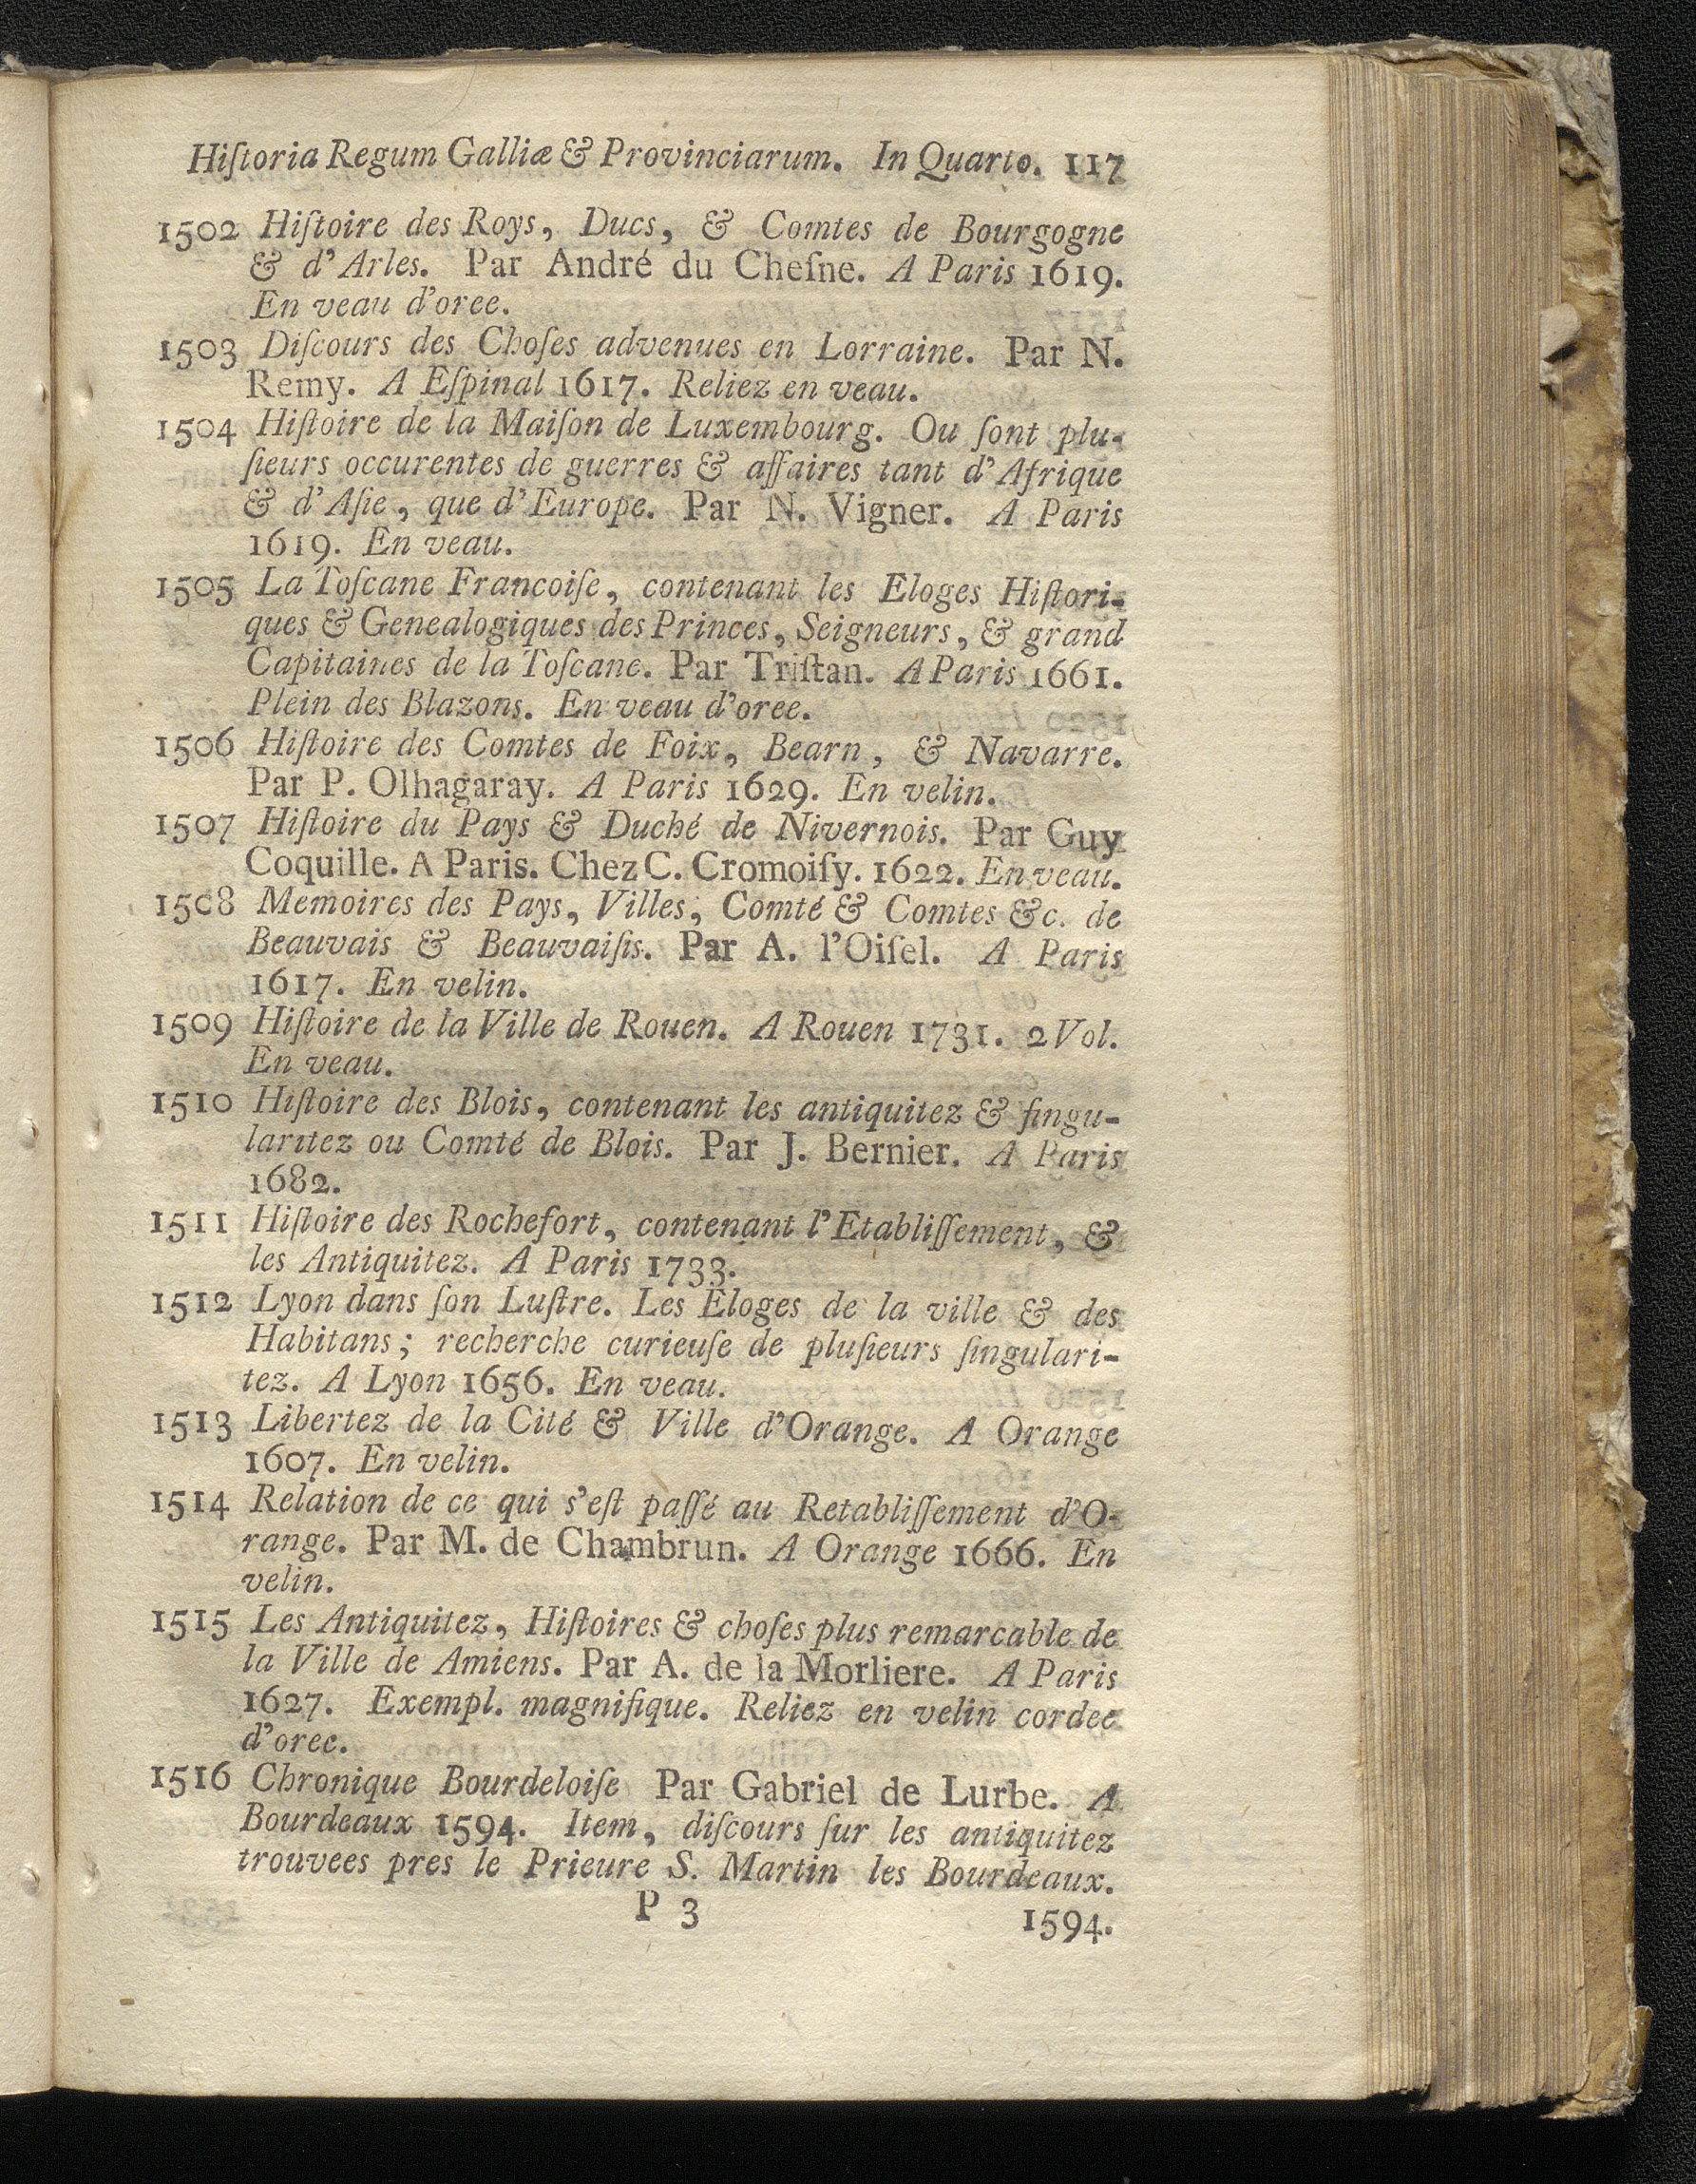 Hiſtoria Regum Galliæ & Provinciarum. In Quarto. 117
1502 Hiſtoire des Roys, Ducs, & Comtes de Bourgogne
& d'Arles. Par André du Cheſne. A Paris 1619.
En veau d'oree.
1503 Diſcours des Choſes advenues en Lorraine. Par N.
Remy. A Eſpinal 1617. Reliez en veau.
1504 Hiſtoire de la Maiſon de Luxembourg. Ou ſont plu-
ſieurs occurentes de guerres & affaires tant d'Afrique
& d'Aſie, que d'Europe. Par N. Vigner. A Paris
1619. En veau.
1505 La Toſcane Francoiſe, contenant les Eloges Hiſtori-
ques & Genealogiques des Princes, Seigneurs, & grand
Capitaines de la Toſcane. Par Triſtan. A Paris 1661.
Plein des Blazons. En veau d'oree.
1506 Hiſtoire des Comtes de Foix, Bearn, & Navarre.
Par P. Olhagaray. A Paris 1629. En velin.
1507 Hiſtoire du Pays & Duché de Nivernois. Par Guy
Coquille. A Paris. Chez C. Cromoiſy. 1622. En veau.
1508 Memoires des Pays, Villes, Comté & Comtes &c. de
Beauvais & Beauvaiſis. Par A. l'Oiſel. A Paris
1617. En velin.
1509 Hiſtoire de la Ville de Rouen. A Rouen 1731. 2 Vol.
En veau.
1510 Hiſtoire des Blois, contenant les antiquitez & ſingu-
laritez ou Comté de Blois. Par J. Bernier. A Paris
1682.
1511 Hiſtoire des Rochefort, contenant l'Etabliſſement, &
les Antiquitez. A Paris 1733.
1512 Lyon dans ſon Luſtre. Les Eloges de la ville & des
Habitans; recherche curieuſe de pluſieurs ſingulari-
tez. A Lyon 1656. En veau.
1513 Libertez de la Cité & Ville d'Orange. A Orange
1607. En velin.
1514 Relation de ce qui s'eſt paſſé au Retabliſſement d'O-
range. Par M. de Chambrun. A Orange 1666. En
velin.
1515 Les Antiquitez, Hiſtoires & choſes plus remarcable de
la Ville de Amiens. Par A. de la Morliere. A Paris
1627. Exempl. magnifique. Reliez en velin cordee
d'oree.
1516 Chronique Bourdeloiſe Par Gabriel de Lurbe. A
Bourdeaux 1594. Item, diſcours ſur les antiquitez
trouvees pres le Prieure S. Martin les Bourdeaux.
P 3 1594.